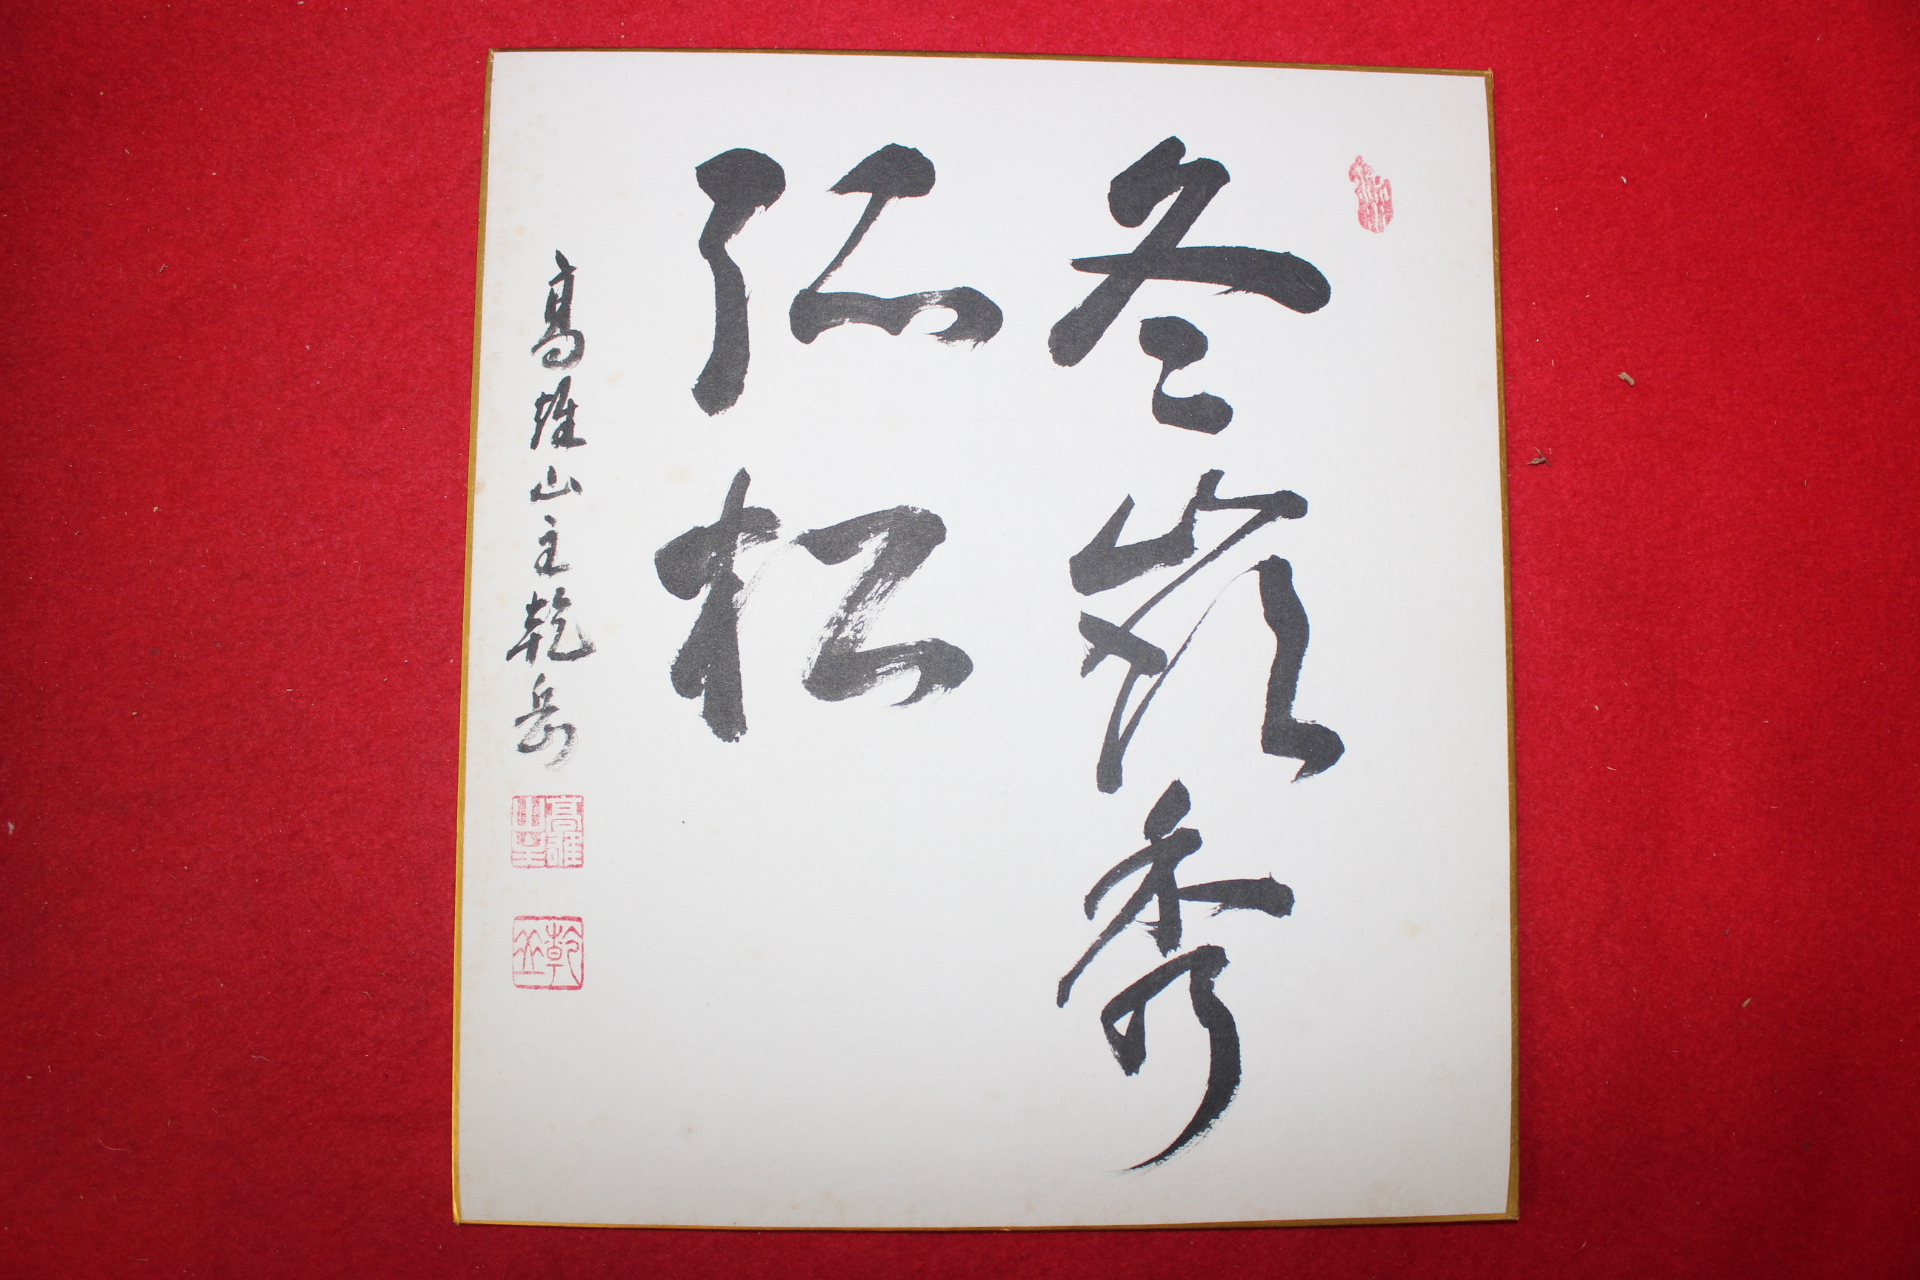 冬嶺秀
孤松
高雄山主乾岳
高雄
山主